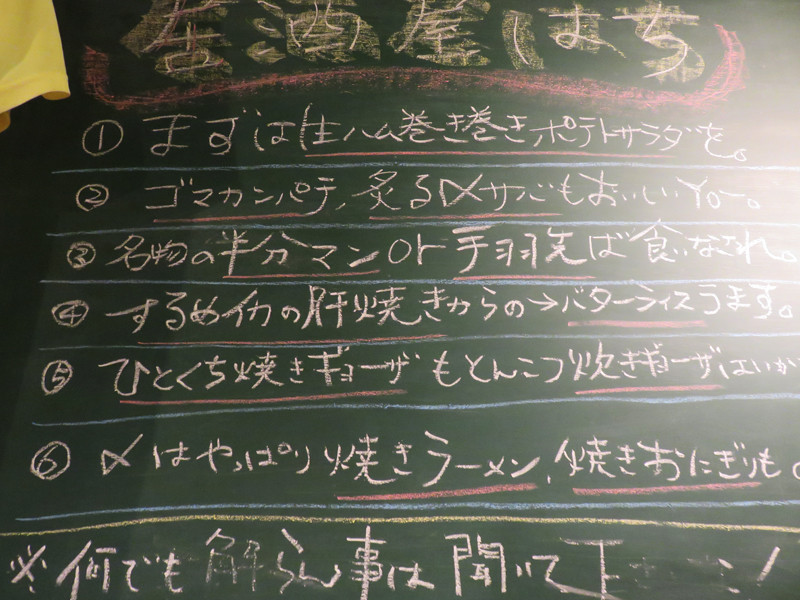 居酒屋はち
① まずは生ハム巻き巻きポテトサラダを。
② ゴマカンパテ、炙る〆サバもおいしいYo〜。
③ 名物の半分マンOr手羽先ば食いなされ。
④ するめイカの肝焼きからの→バターライスうます。
⑤ ひとくち焼きギョーザもとんこつ炊きギョーザはいか
⑥ 〆はやっぱり焼きラーメン、焼きおにぎりも。
※何でも解らん事は聞いて下さい!